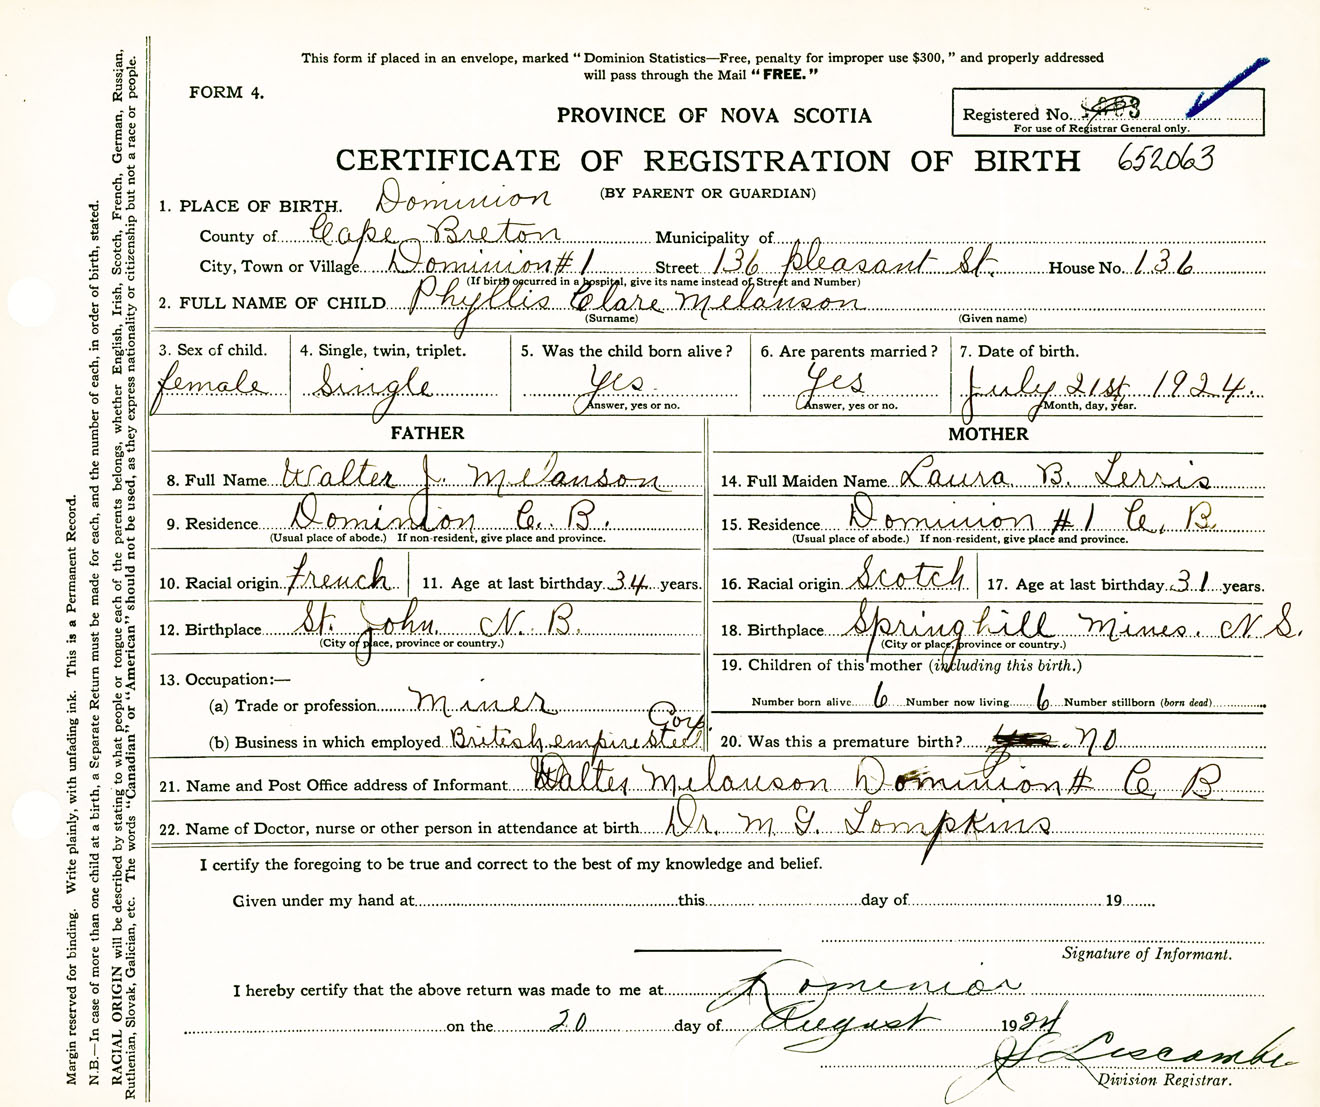 This form if placed in an envelope, marked "Dominion Statistics—Free, penalty for improper use $300," and properly addressed
will pass through the Mail "FREE."
FORM 4.
PROVINCE OF NOVA SCOTIA
Registered No.
For use of Registrar General only.
CERTIFICATE OF REGISTRATION OF BIRTH 652063
(BY PARENT OR GUARDIAN)
1. PLACE OF BIRTH. Dominion
County of Cape Breton Municipality of
City, Town or Village Dominion #1 Street 136 pleasant St. House No. 136
(If birth occurred in a hospital, give its name instead of Street and Number)
2. FULL NAME OF CHILD Phyllis Clare Melanson
(Surname) (Given name)
3. Sex of child. 4. Single, twin, triplet. 5. Was the child born alive? 6. Are parents married? 7. Date of birth.
female Single Yes Yes July 21st, 1924.
Answer, yes or no. Answer, yes or no. Month, day, year.
FATHER MOTHER
8. Full Name Walter J. Melanson 14. Full Maiden Name Laura B.
9. Residence Dominion C. B. 15. Residence Dominion #1 C. B.
(Usual place of abode.) If non-resident, give place and province. (Usual place of abode.) If non-resident, give place and province.
10. Racial origin French 11. Age at last birthday 34 years. 16. Racial origin Scotch 17. Age at last birthday 31 years.
12. Birthplace St. John. N. B. 18. Birthplace Springhill Mines. N S.
(City or place, province or country.) (City or place, province or country.)
13. Occupation:— 19. Children of this mother (including this birth.)
(a) Trade or profession Miner Number born alive 6 Number now living 6 Number stillborn (born dead)
(b) Business in which employed British empire Steel Corp. 20. Was this a premature birth? NO
21. Name and Post Office address of Informant Walter Melanson Dominion # C. B.
22. Name of Doctor, nurse or other person in attendance at birth Dr. M. G. Tompkins
I certify the foregoing to be true and correct to the best of my knowledge and belief.
Given under my hand at this day of 19
Signature of Informant.
I hereby certify that the above return was made to me at Dominion
on the 20 day of August 1924
Liscombe
Division Registrar.
Margin reserved for binding. Write plainly, with unfading ink. This is a Permanent Record.
N.B.—In case of more than one child at a birth, a Separate Return must be made for each, and the number of each, in order of birth, stated.
RACIAL ORIGIN will be described by stating to what people or tongue each of the parents belongs, whether English, Irish, Scotch, French, German, Russian,
Ruthenian, Slovak, Galician, etc. The words "Canadian" or "American" should not be used, as they express nationality or citizenship but not a race or people.